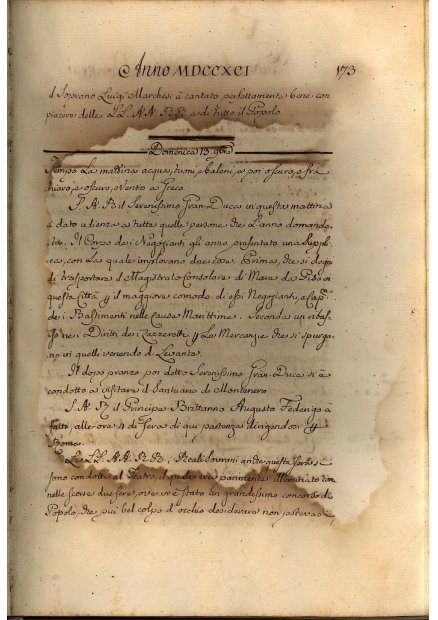 Anno MDCCXCI 173
il Soprano Luigi Marchesi à cantato perfettamente bene con
piacere delle LL. AA. RR. e di tutto il Popolo
Domenica 13.
Tempo La mattina acqua, tuoni, e baleni, e poi oscuro, e fra
chiaro, e oscuro, e Vento a Greco.
S. A. R. il Serenissimo Gran-Duca in questa mattina
à dato udienza a tutte quelle persone che L'anno domanda-
ta. Il Corpo dei Negozianti gli anno presentato una Suppli-
ca, con La quale implorano due cose. Prima, che si degni
di trasportare il Magistrale Consolare di Mare da Pisa in
questa Città il maggiore comodo di essi Negozianti, e Cap.
dei Bastimenti nelle cause Marittime. Seconda un ribas-
so nei Diritti dei Lazzeretti La Mercanzie che si spurgo-
no in quelli venendo di Levante.
Il dopo pranzo poi detto Serenissimo Gran-Duca si è
condotto a visitare il Santuario di Montenero
S. A. R. il Principe Brittanno Augusto Federigo à
fatto alle ore 4 di Sera di qui partenza dirigendosi
Roma.
Le LL. AA. RR. i Reali Sovrani anche questa sera si
sono condotti al Teatro, il quale era parimente illuminato come
nelle scorse due sere, ove vi è stato un grandissimo concorso di
Popolo, che più bel colpo d'occhio desiderare non potevasi